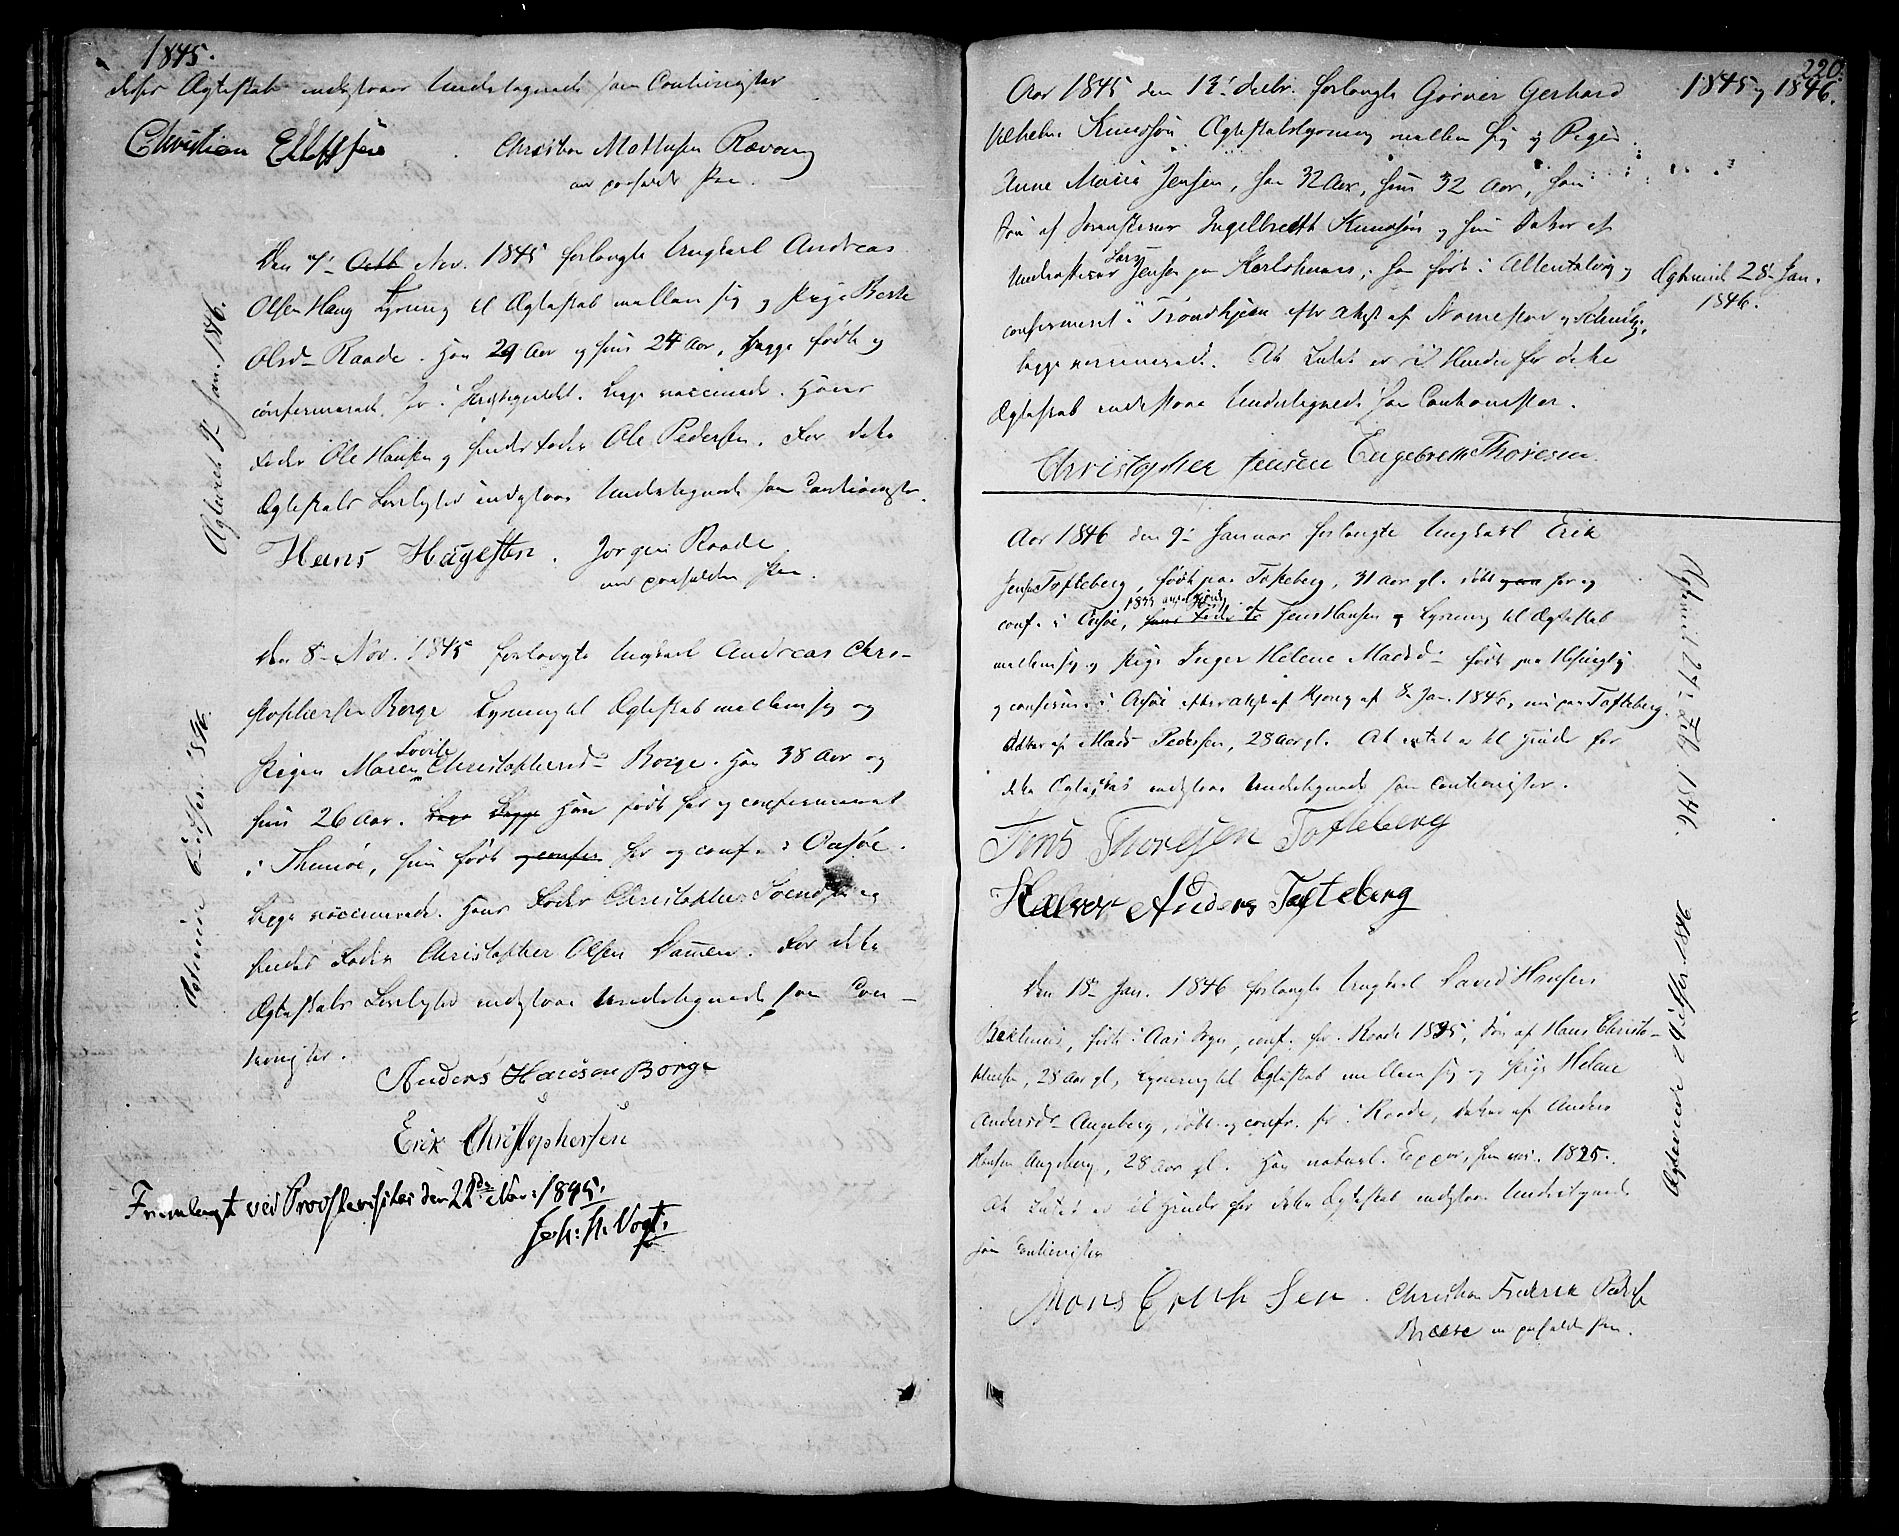 1845.
dette Ægteskab indestaaer Undertegnede som Cautionister
Christian Elleffsen . Christian Mathisen Ravoug
med paaholden Pen.
Den 7de Octb Nov. 1845 forlangte Ungkarl Andreas
Olsen Haug Lysning til Ægteskab mellem sig og Pige Berte
Olsd. Raade. Han 29 Aar og hun 24 Aar, begge fødte og
confirmerede her i Præstegieldet. Begge vaccinerede. Hans
Fader Ole Hansen og hendes Fader Ole Pedersen. For dette
Ægteskabs Lovlighed indestaae Undertegnede som Cautionister.
Hans Hagesten . Jørgen Raade
med paaholden Pen.
Ægteviet 2 Jan. 1846.
Den 8de Nov. 1845 forlangte Ungkarl Andreas Chri-
stophersen Borge Lysning til Ægteskab mellem sig og
Pigen Maren Lovise Christophersd. Borge. Han 38 Aar og
hun 26 Aar. Begge Han født her og confirmeret
i Thunøe, hun født og confir her og conf. i Onsøe.
Begge vaccinerede. Hans Fader Christopher Svendsen og
hendes Fader Christopher Olsen Dammen. For dette
Ægteskabs Lovlighed indestaae Undertegnede som Cau-
tionister.
1846.
Anders Hansen Borge
Erik Christophersen
Fremlagt ved Provstevisitas den 22de Nov: 1845.
Joh: H. Vogt.
220.
1845 og 1846.
Aar 1845 den 12 decbr. forlangte Gørner Gerhard
Vilhelm Knudsøn Ægteskabslysning mellem sig og Pigen
Anne Maria Jensen, han 32 Aar, hun 32 Aar, han
Søn af Ingelbreth Knudsøn og hun Datter af
Underofficeer Lars Jensen paa Karlshuus; han født i Altentalvig og
confirmeret i Trondhjem efter Attest af
begge vaccinerede. At Intet er til Hinder for dette
Ægteskab indestaae Undertegnede som Cautionister.
Christopher Jensen Engebreth Thoresen
Ægteviet 28 Jan.
1846.
Aar 1846 den 9de Januar forlangte Ungkarl Erik
Jensen Tofteberg, født paa Tofteberg, 31 Aar gl. døbt her og
conf. i Onsøe, 1833 Jens Hansen og Lysning til Ægteskab
mellem sig og Pige Inger Helene Madsd. født paa
og confirm. i Onsøe efter Attest af Kjong af 8 Jan. 1846, nu paa Tofteberg.
Datter af Mads Pedersen, 28 Aar gl. At Intet er til Hinder for
dette Ægteskab indestaae Undertegnede som Cautionister.
Jens Thoresen Tofteberg
Halvor Anders Tofteberg
Ægteviet 24 Feb. 1846.
Den 18de Jan. 1846 forlangte Ungkarl David Hansen
født i Aas Sogn, conf. her i Raade 1835, Søn af Hans Christo-
28 Aar gl, Lysning til Ægteskab mellem sig og Pige Helene
Andersd. Augeberg, døbt og confr. her i Raade, Datter af Anders
Hansen Augeberg, 28 Aar gl. Han naturl. Kopper, hun vac. 1825.
At Intet er til Hinder for dette Ægteskab indestaae Undertegnede
som Cautionister
Mons Erichsen . Christian Frederik Peders
med paaholden Pen.
1846